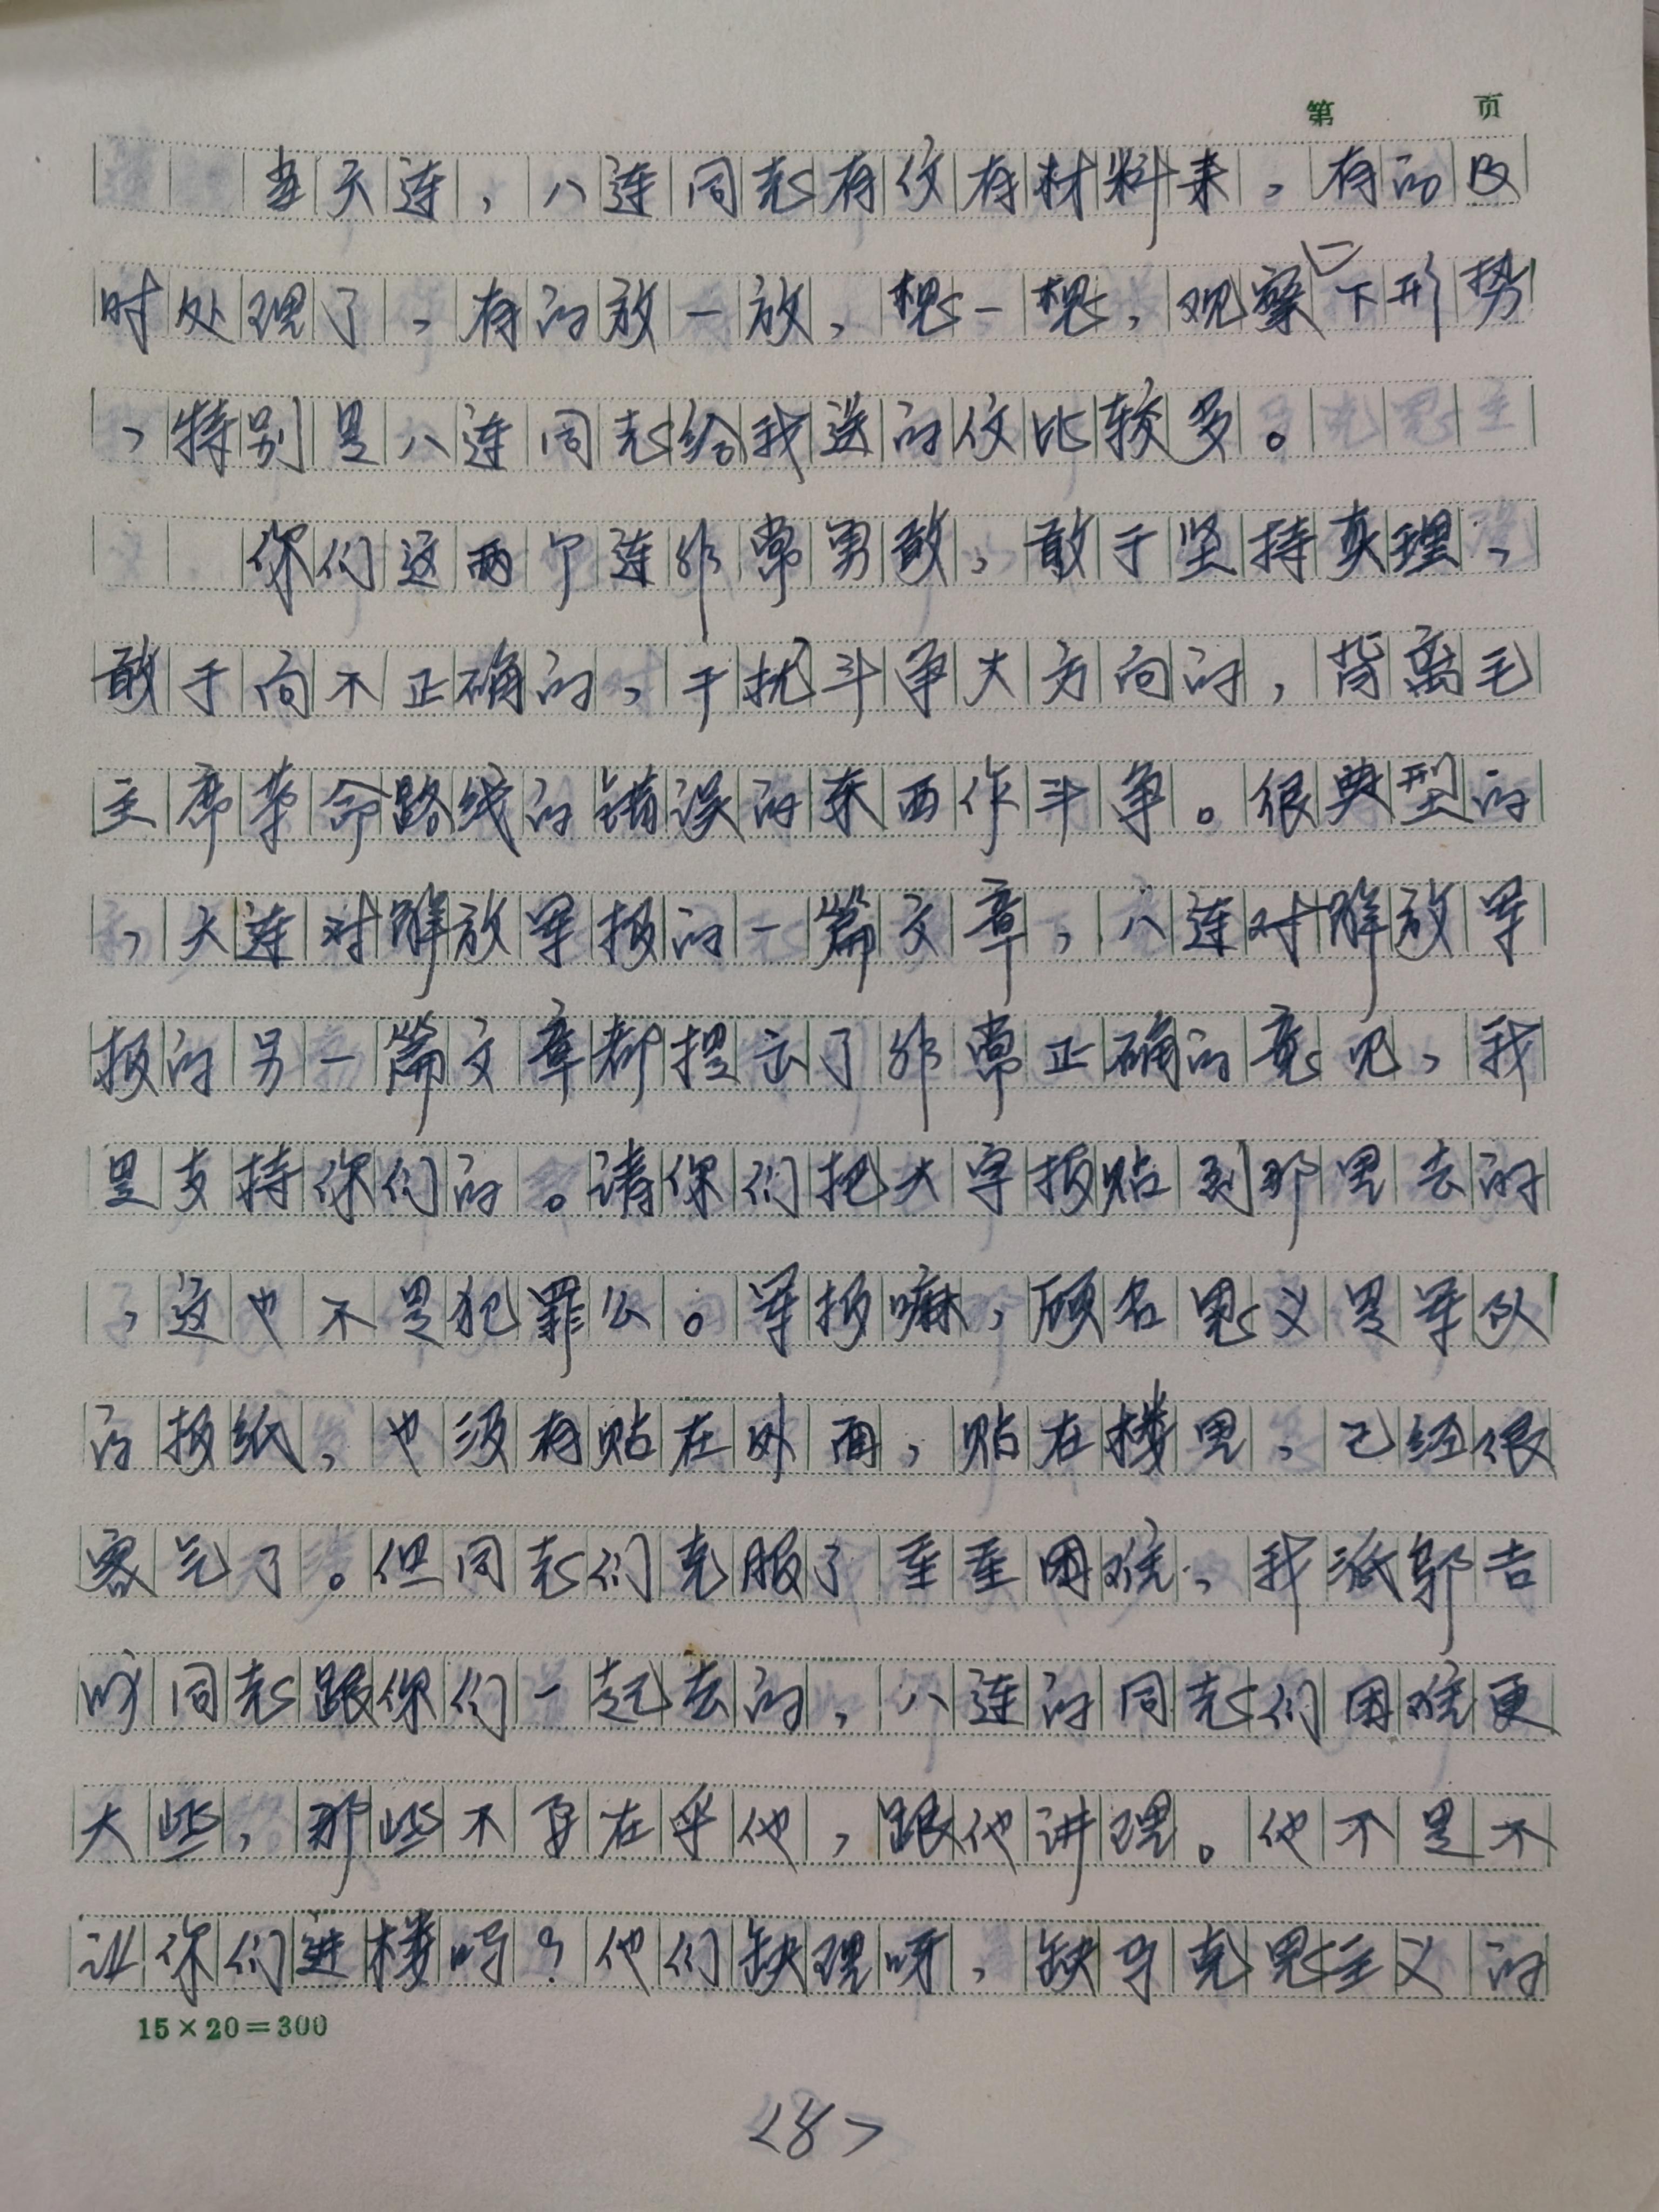 第 页
当天连，八连同志有信有材料来，有的及
时处理了，有的放一放，想一想，观察一下形势
，特别是八连同志给我送的信比较多。
你们这两个连非常勇敢，敢于坚持真理，
敢于向不正确的，干扰斗争大方向的，背离毛
主席革命路线的错误的东西作斗争。很典型的
，大连对解放军报的一篇文章，八连对解放军
报的另一篇文章都提出了非常正确的意见，我
是支持你们的。请你们把大字报贴到那里去的
，这也不是犯罪么。军报嘛，顾名思义是军队
的报纸，也没有贴在外面，贴在楼里，已经很
客气了。但同志们克服了重重困难，我派郭吉
同志跟你们一起去的，八连的同志们困难更
大些，那些不在乎他，跟他讲理。他不是不
让你们进楼吗？他们缺理呀，缺马克思主义的
15×20=300
<8>